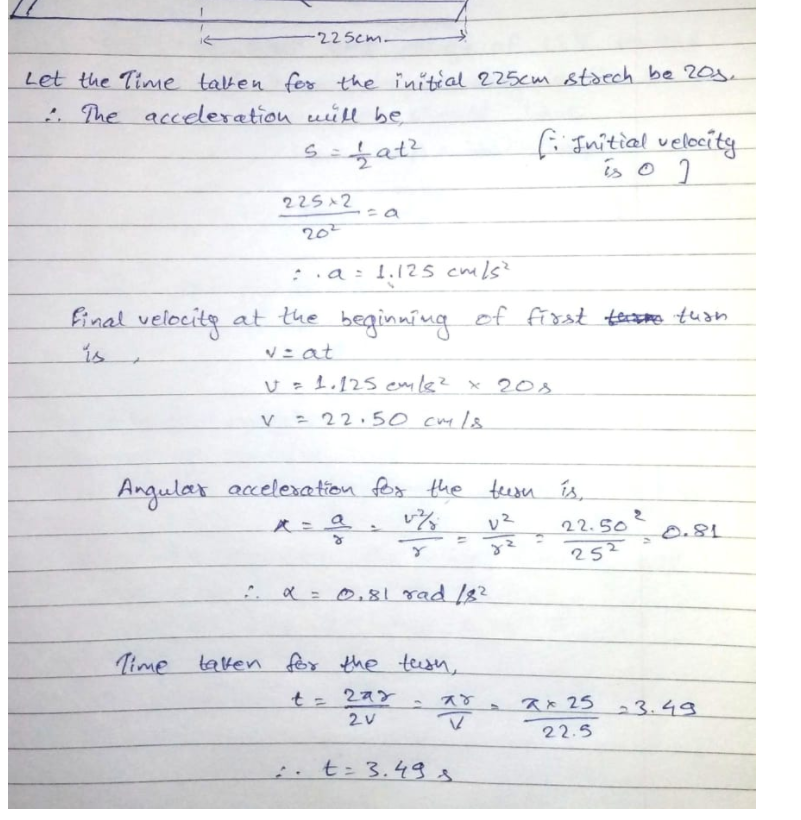 225cm.
Let the Time taken for the initial 225cm strech be 20s.
∴ The acceleration will be,
s = 1/2 at² [∵ Initial velocity
is 0 ]
225×2 / 20² = a
∴ a = 1.125 cm/s²
Final velocity at the beginning of first turn
is, v = at
v = 1.125 cm/s² × 20s
v = 22.50 cm/s
Angular acceleration for the turn is,
α = a/r = (v²/r)/r = v²/r² = 22.50²/25² = 0.81
∴ α = 0.81 rad/s²
Time taken for the turn,
t = 2πr/2v = πr/v = π×25/22.5 = 3.49
∴ t = 3.49 s